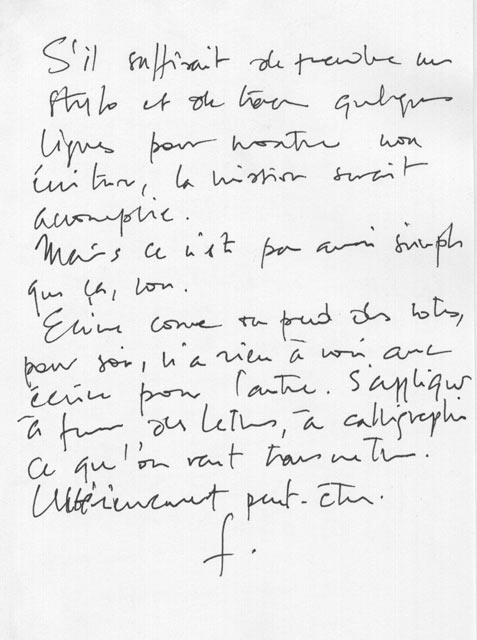 S'il suffisait de prendre un
stylo et de tracer quelques
lignes pour montrer mon
écriture, la mission serait
accomplie.
Mais ce n'est pas aussi simple
que ça, non.
Ecrire comme on prend des notes,
pour soi, n'a rien à voir avec
écrire pour l'autre. S'appliquer
à former des lettres, à calligraphier
ce qu'on veut transmettre.
Ultérieurement peut-être.
f.